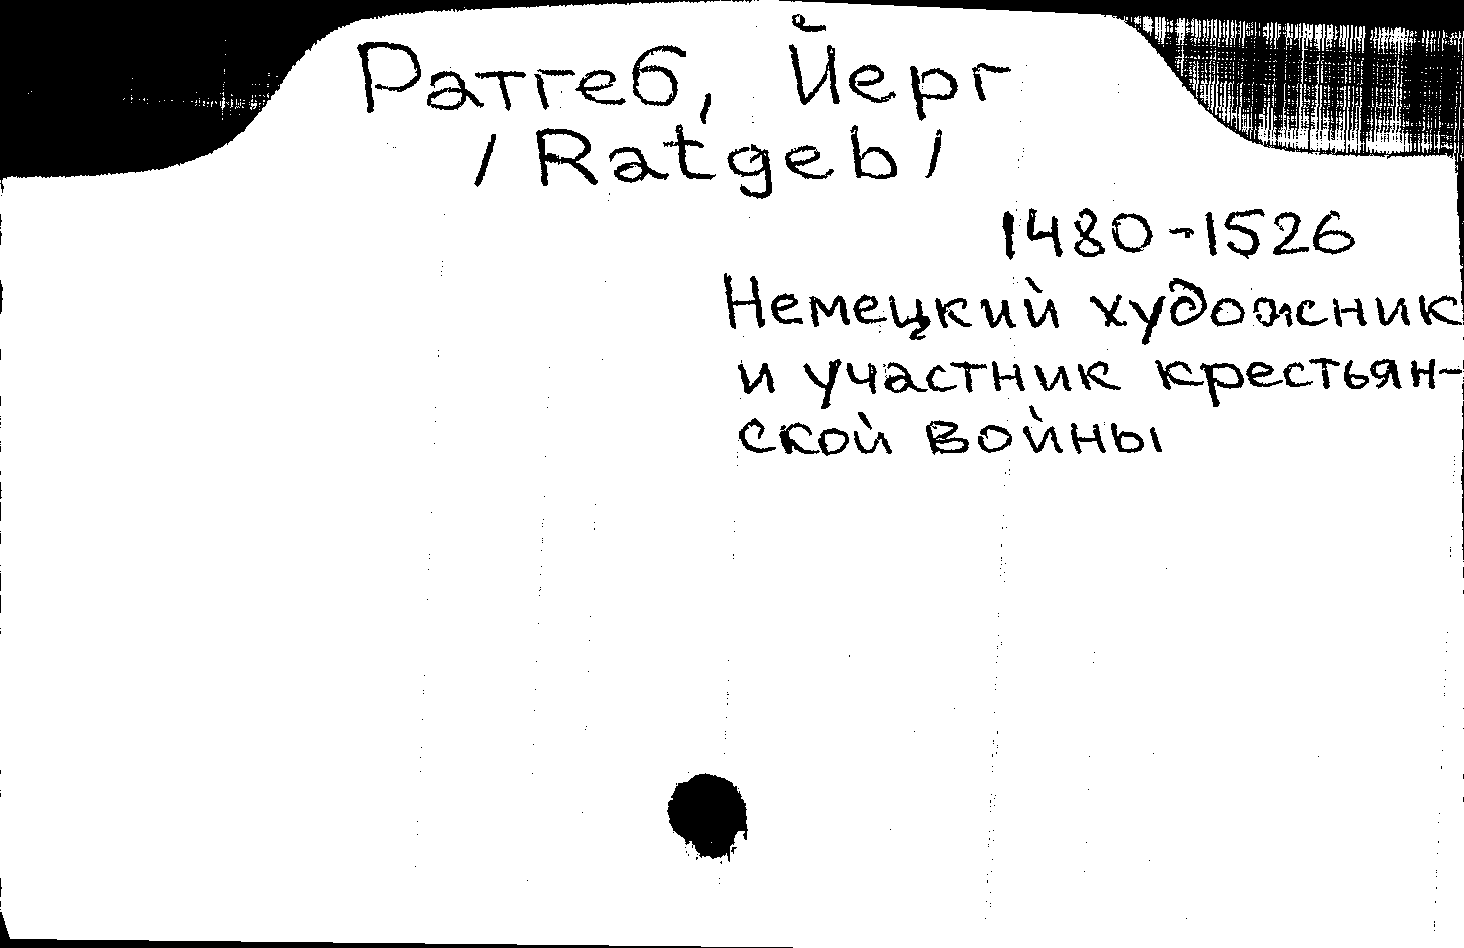 Ратгеб, Йерг
/Ratgeb/
1480-1526
Немецкий художник
и участник крестьян-
ской войны